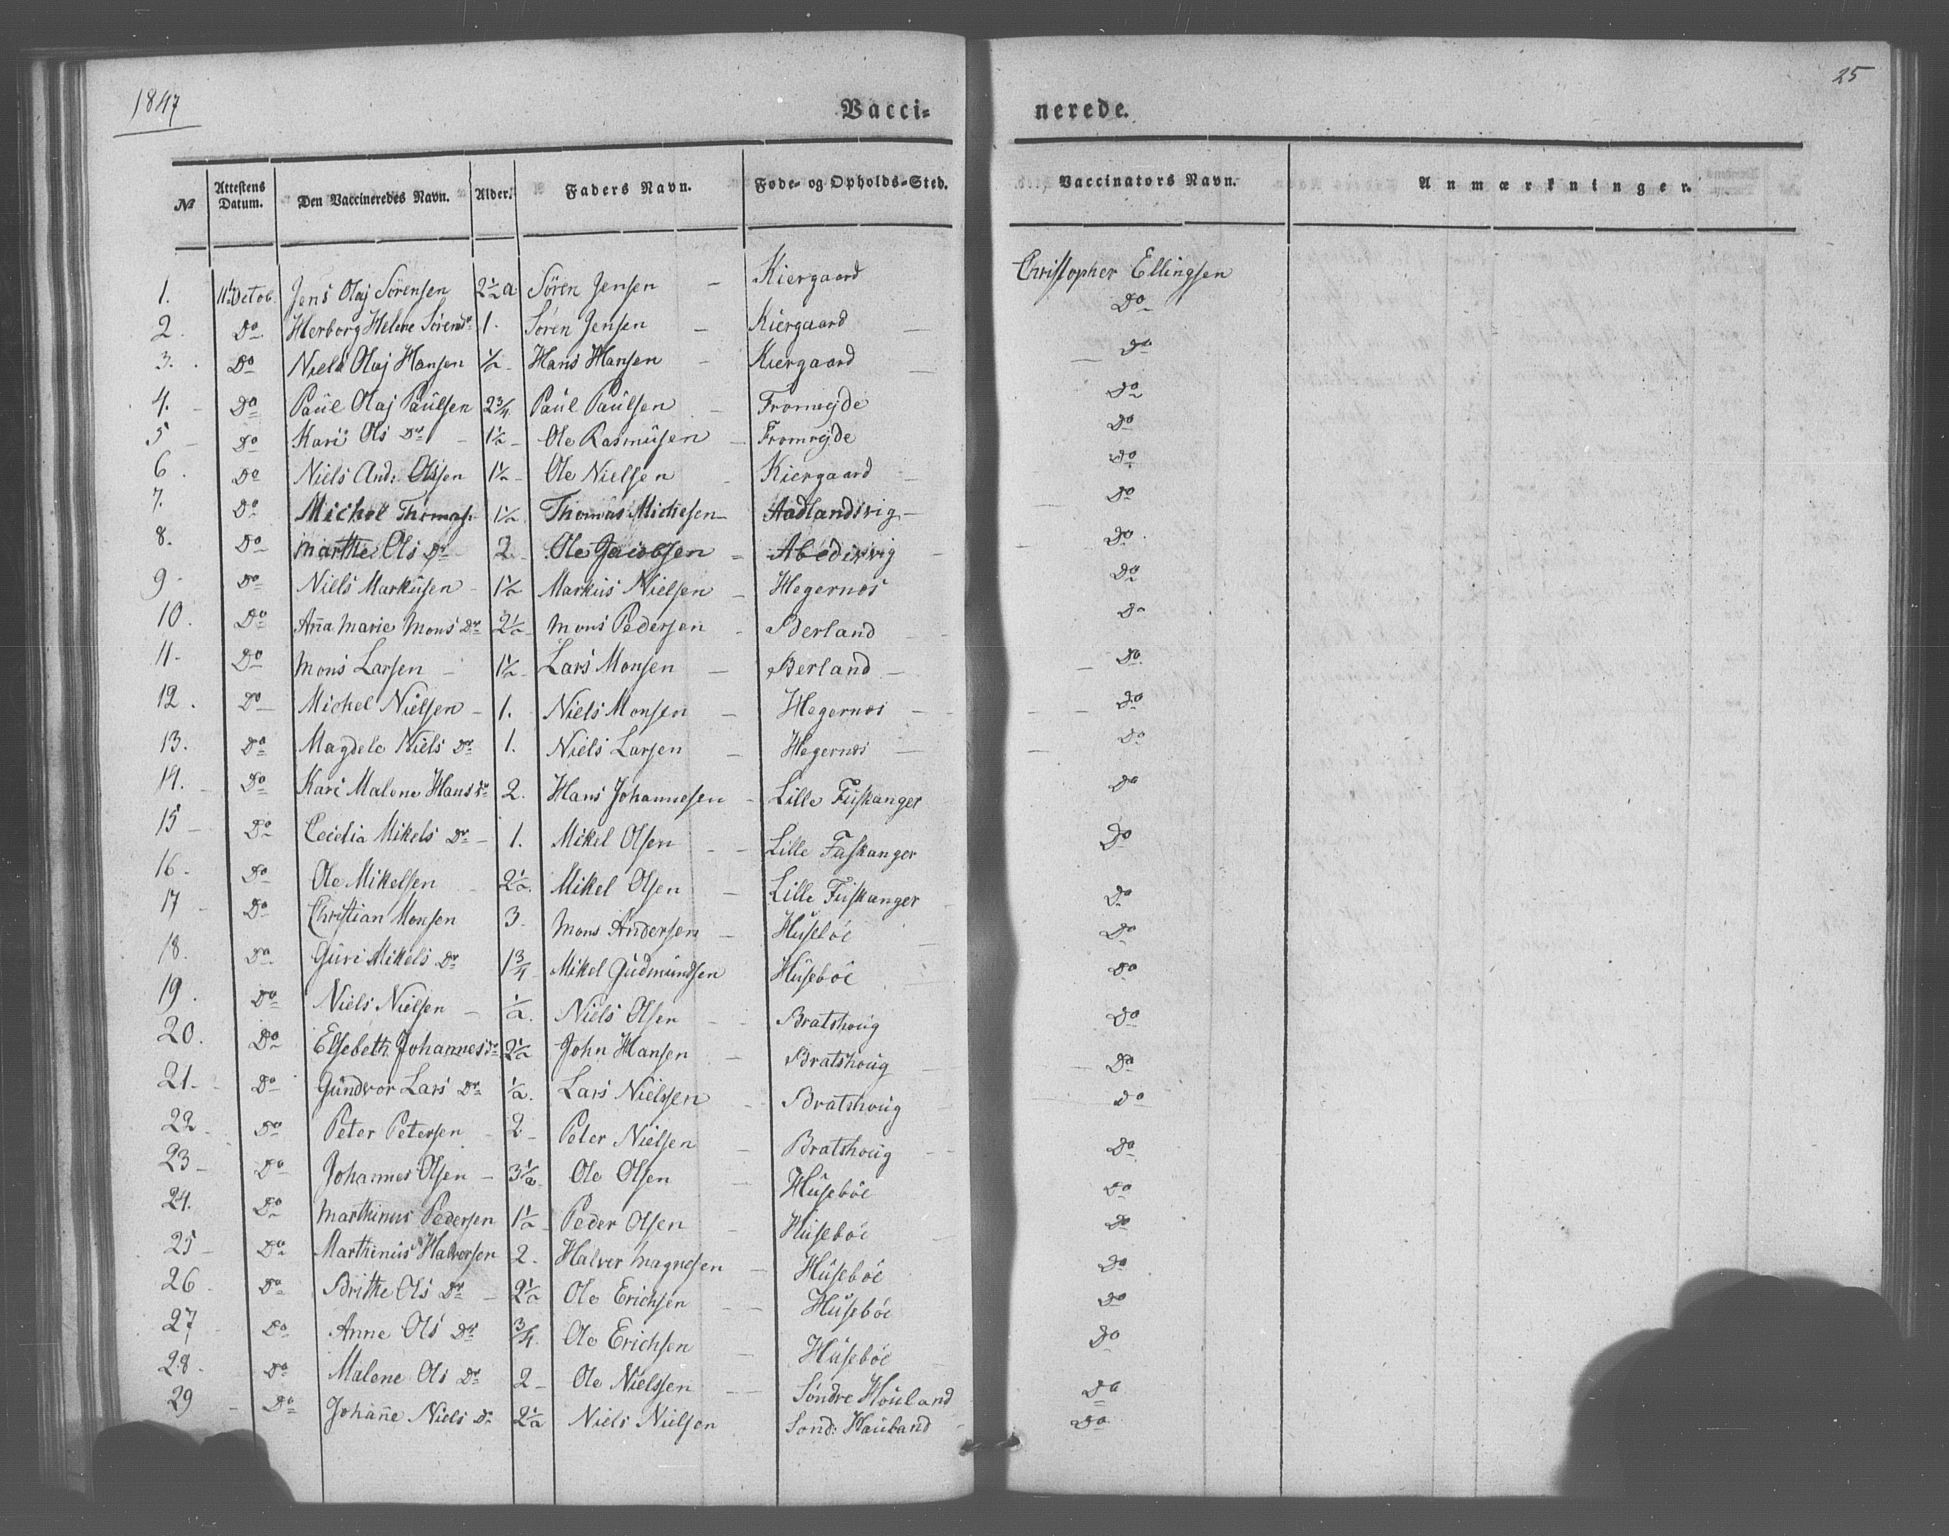 1847
25
Vaccinerede.
№ Attestens Datum. Den Vaccineredes Navn. Alder. Faders Navn. Føde- og Opholds-Sted. Vaccinators Navn. Anmærkninger.
1. 11 Octob. Jens Olaj Sörensen 2½ a Sören Jensen - Kiergaard Christopher Ellingsen
2. Do Herborg Helene Sörensdr 1. Sören Jensen - Kiergaard Do
3. Do Niels Olaj Hansen ½ - Hans Hansen - Kiergaard Do
4. Do Paul Olaj Paulsen 2¾ Paul Paulsen - Fromrejde Do
5 Do Kari Ols Dr 1½ - Ole Rasmusen - Fromrejde Do
6 Do Niels And: Olsen 1½ - Ole Nielsen - Kiergaard Do
7. Do Michel Thomas. 1½ Thomas Michesen - Aadlandsvig Do
8. Do Marthe Ols Dr 2. Ole Jacobsen - Do
9 Do Niels Markusen - 1½ Markus Nielsen - Hegernes Do
10. Do Aña Marie Mons Dr 2½ Mons Pedersen - Berland Do
11. Do Mons Larsen - 1½ Lars Monsen - Berland - Do
12. Do Michel Nielsen - 1. Niels Monsen - Hegernes - Do
13. Do Magdele Niels Dr 1. Niels Larsen - Hegernes - Do
14. Do Kari Malene Hans Dr 2. Hans Johannesen - Lille Fuskanger Do
15 Do Cecelia Mikels Dr - 1. Mikel Olsen - Lille Fuskanger Do
16. Do Ole Mikelsen 2½. Mikel Olsen - Lille Fuskanger Do
17 Do Christian Monsen 3. Mons Andersen - Huseböe Do
18. Do Guri Mikels Dr 1¾ Mikel Gudmundsen Huseböe Do
19. Do Niels Nielsen - ½. Niels Olsen - Bratshoug Do
20. Do Elsebeth Johannes Dr 2½ John Hansen - Bratshoug Do
21. Do Gundvor Lars Dr ½. Lars Nielssen Bratshoug Do
22 Do Peter Petersen - 2 - Peter Nielsen - Bratshoug Do
23 Do Johannes Olsen - 3½ Ole Olsen Huseböe Do
24. Do Marthinus Pedersen 1½ Peder Olsen - Huseböe Do
25 Do Marthinus Halvorsen 2. Halver Magnesen - Huseböe Do
26 Do Brithe Ols Dr - 2½ Ole Erichsen - Huseböe Do
27 Do Anne Ols Dr ¾. Ole Erichsen Huseböe Do
28. Do Malene Ols Dr 2 - Ole Nielssen - Söndre Houland Do
29 Do Johañe Niels Dr 2½ Niels Nielsen Sond: Hauland Do